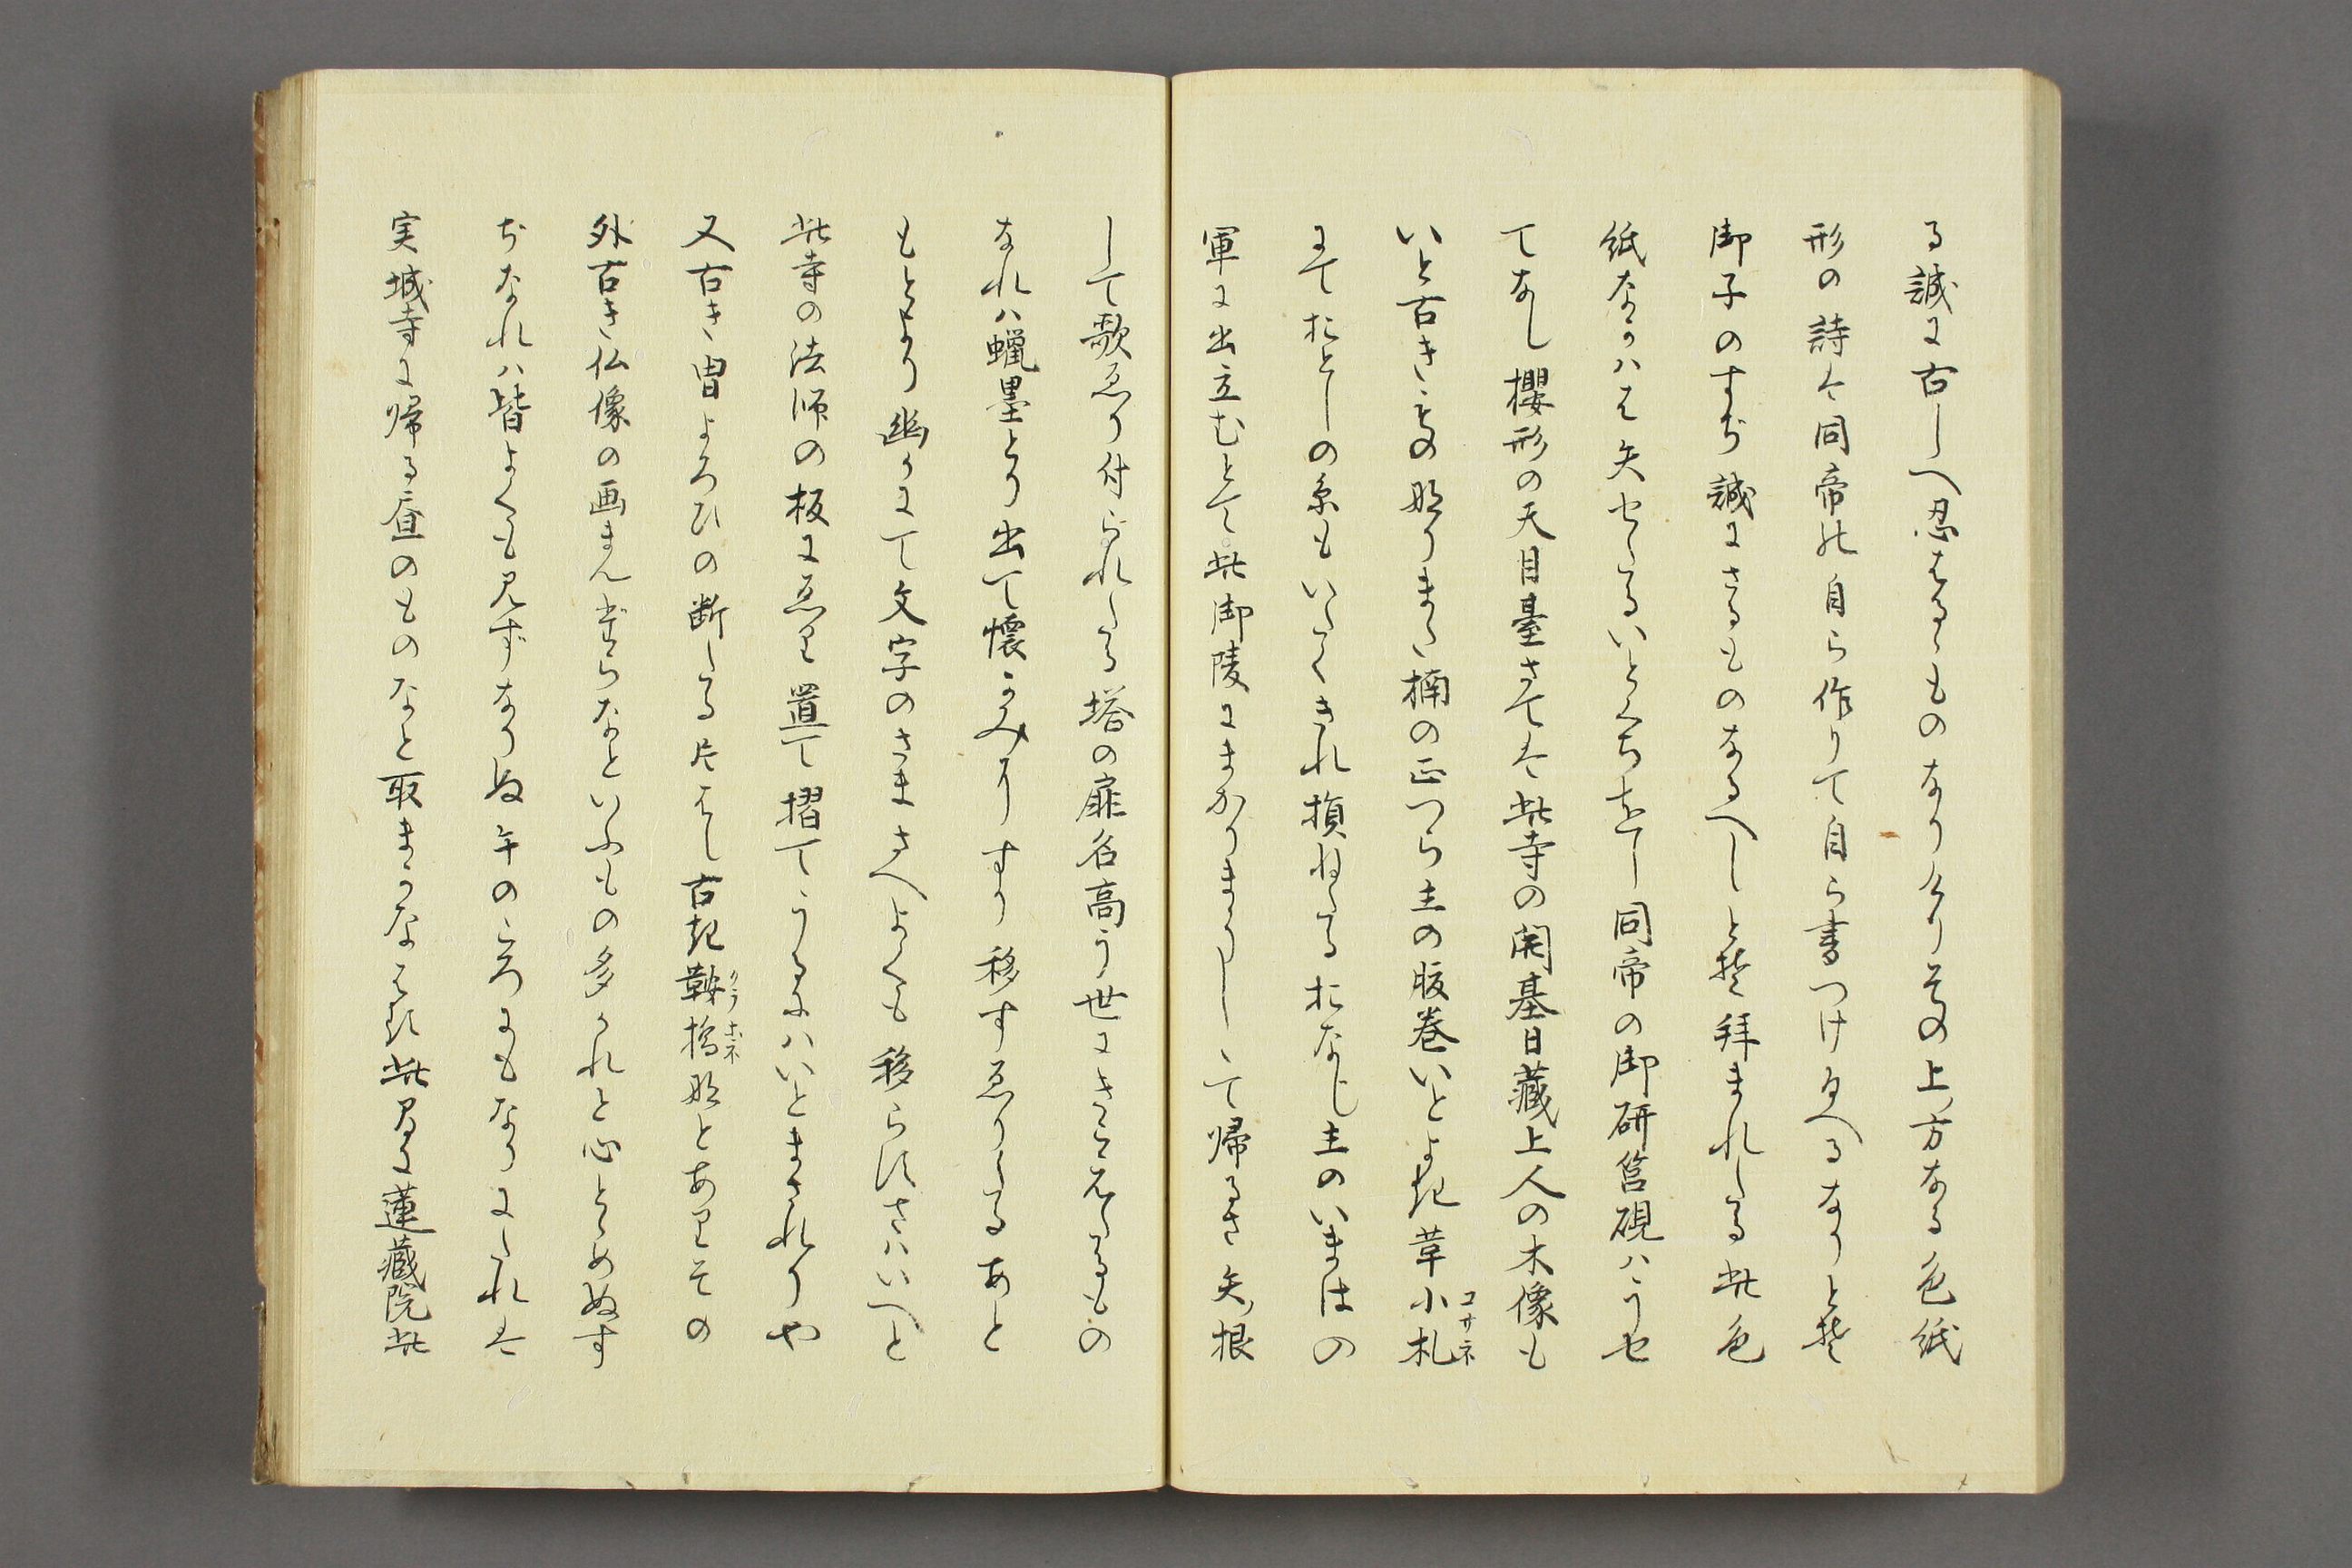 る誠に古しへ忍はるゝものなりけり其の上ミ方なる色紙
形の詩は同帝の自ら作りて自ら書つけ給へるなりとそ
御子のすぢ誠にさるものなるへしとそ拝まれたる此色
紙なかはは失せたるいとくちをし同帝の御研筥硯はうせ
てなし櫻形の天目臺さては此寺の開基日藏上人の木像も
いと古きもの也けりまた楠の正つら主の腹巻いとよき革小札コサネ
にておとしの糸もいたくきれ損ねたるおなし主のいまはの
軍に出立むとて此御陵にまかりまうしゝて帰るさ矢ノ根
して歌ゑり付られたる塔の扉名高う世にきこえたるもの
なれハ蝋墨とり出て懐かみりすり移すゑりたるあと
もとより幽かにて文字のさまさへよくも移らすさはいへと
此寺の法師の板にゑり置て摺てうるよハいとまされりや
又古き冑よろひの断たる片はし古き鞍橋クラホネ也とありその
外古き仏像の画まんだらなといふもの多かれと心とゝめぬす
ぢなれハ皆よくも見ずなりぬ午のころにもなりにたれは
実城寺に帰る昼のものなと取まかなはす此君は蓮藏院此